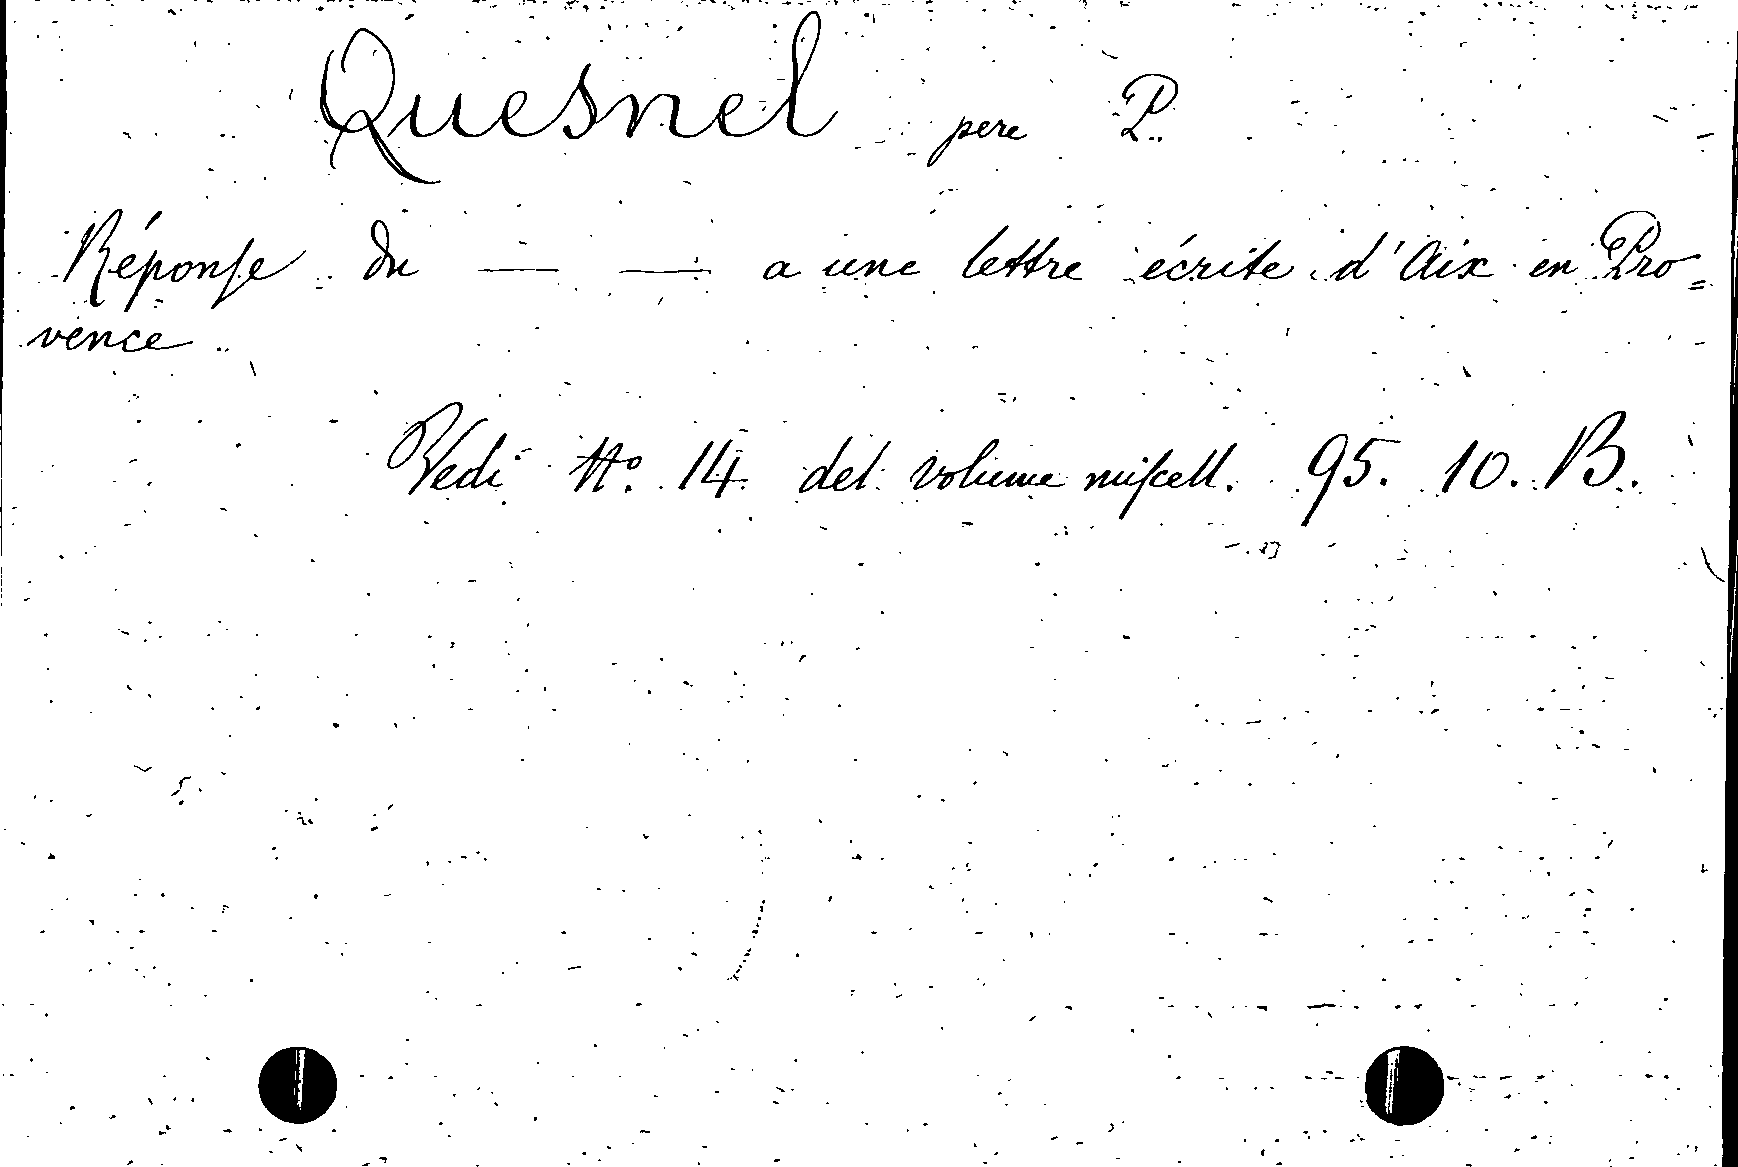 Quesnel pere P.
Réponse du — — a une lettre écrite d'Aix en Pro=
vence.
Vedi No. 14 del volume miscell. 95. 10. B.